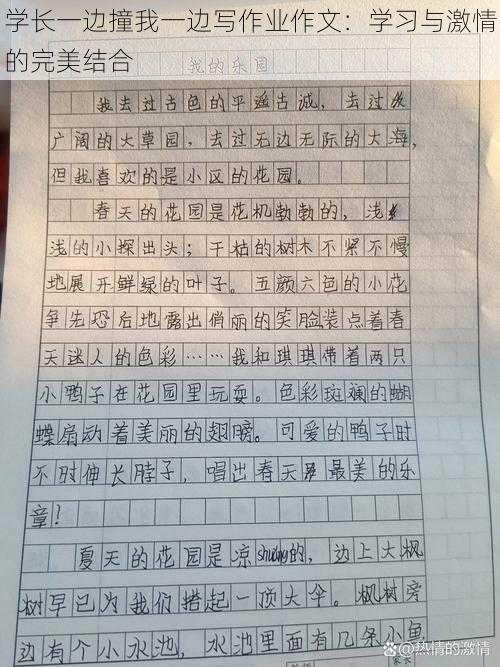 学长一边撞我一边写作业作文：学习与激情
的完美结合
我的乐园
我去过古色的平遥古诚，去过
广阔的大草园，去过无边无际的大海，
但我喜欢的是小区的花园。
春天的花园是花机勃勃的，浅
浅的小探出头；干枯的树木不紧不慢
地展开鲜绿的叶子。五颜六色的小花
争先恐后地露出俏丽的笑脸装点着春
天迷人的色彩……我和琪琪带着两只
小鸭子在花园里玩耍。色彩斑斓的蝴
蝶扇动着美丽的翅膀。可爱的鸭子时
不时伸长脖子，唱出春天最美的乐
章！
夏天的花园是凉shuang的，边上大枫
树早已为我们搭起一顶大伞。枫树旁
边有个小水池，水池里面有几条小鱼
@热情的激情